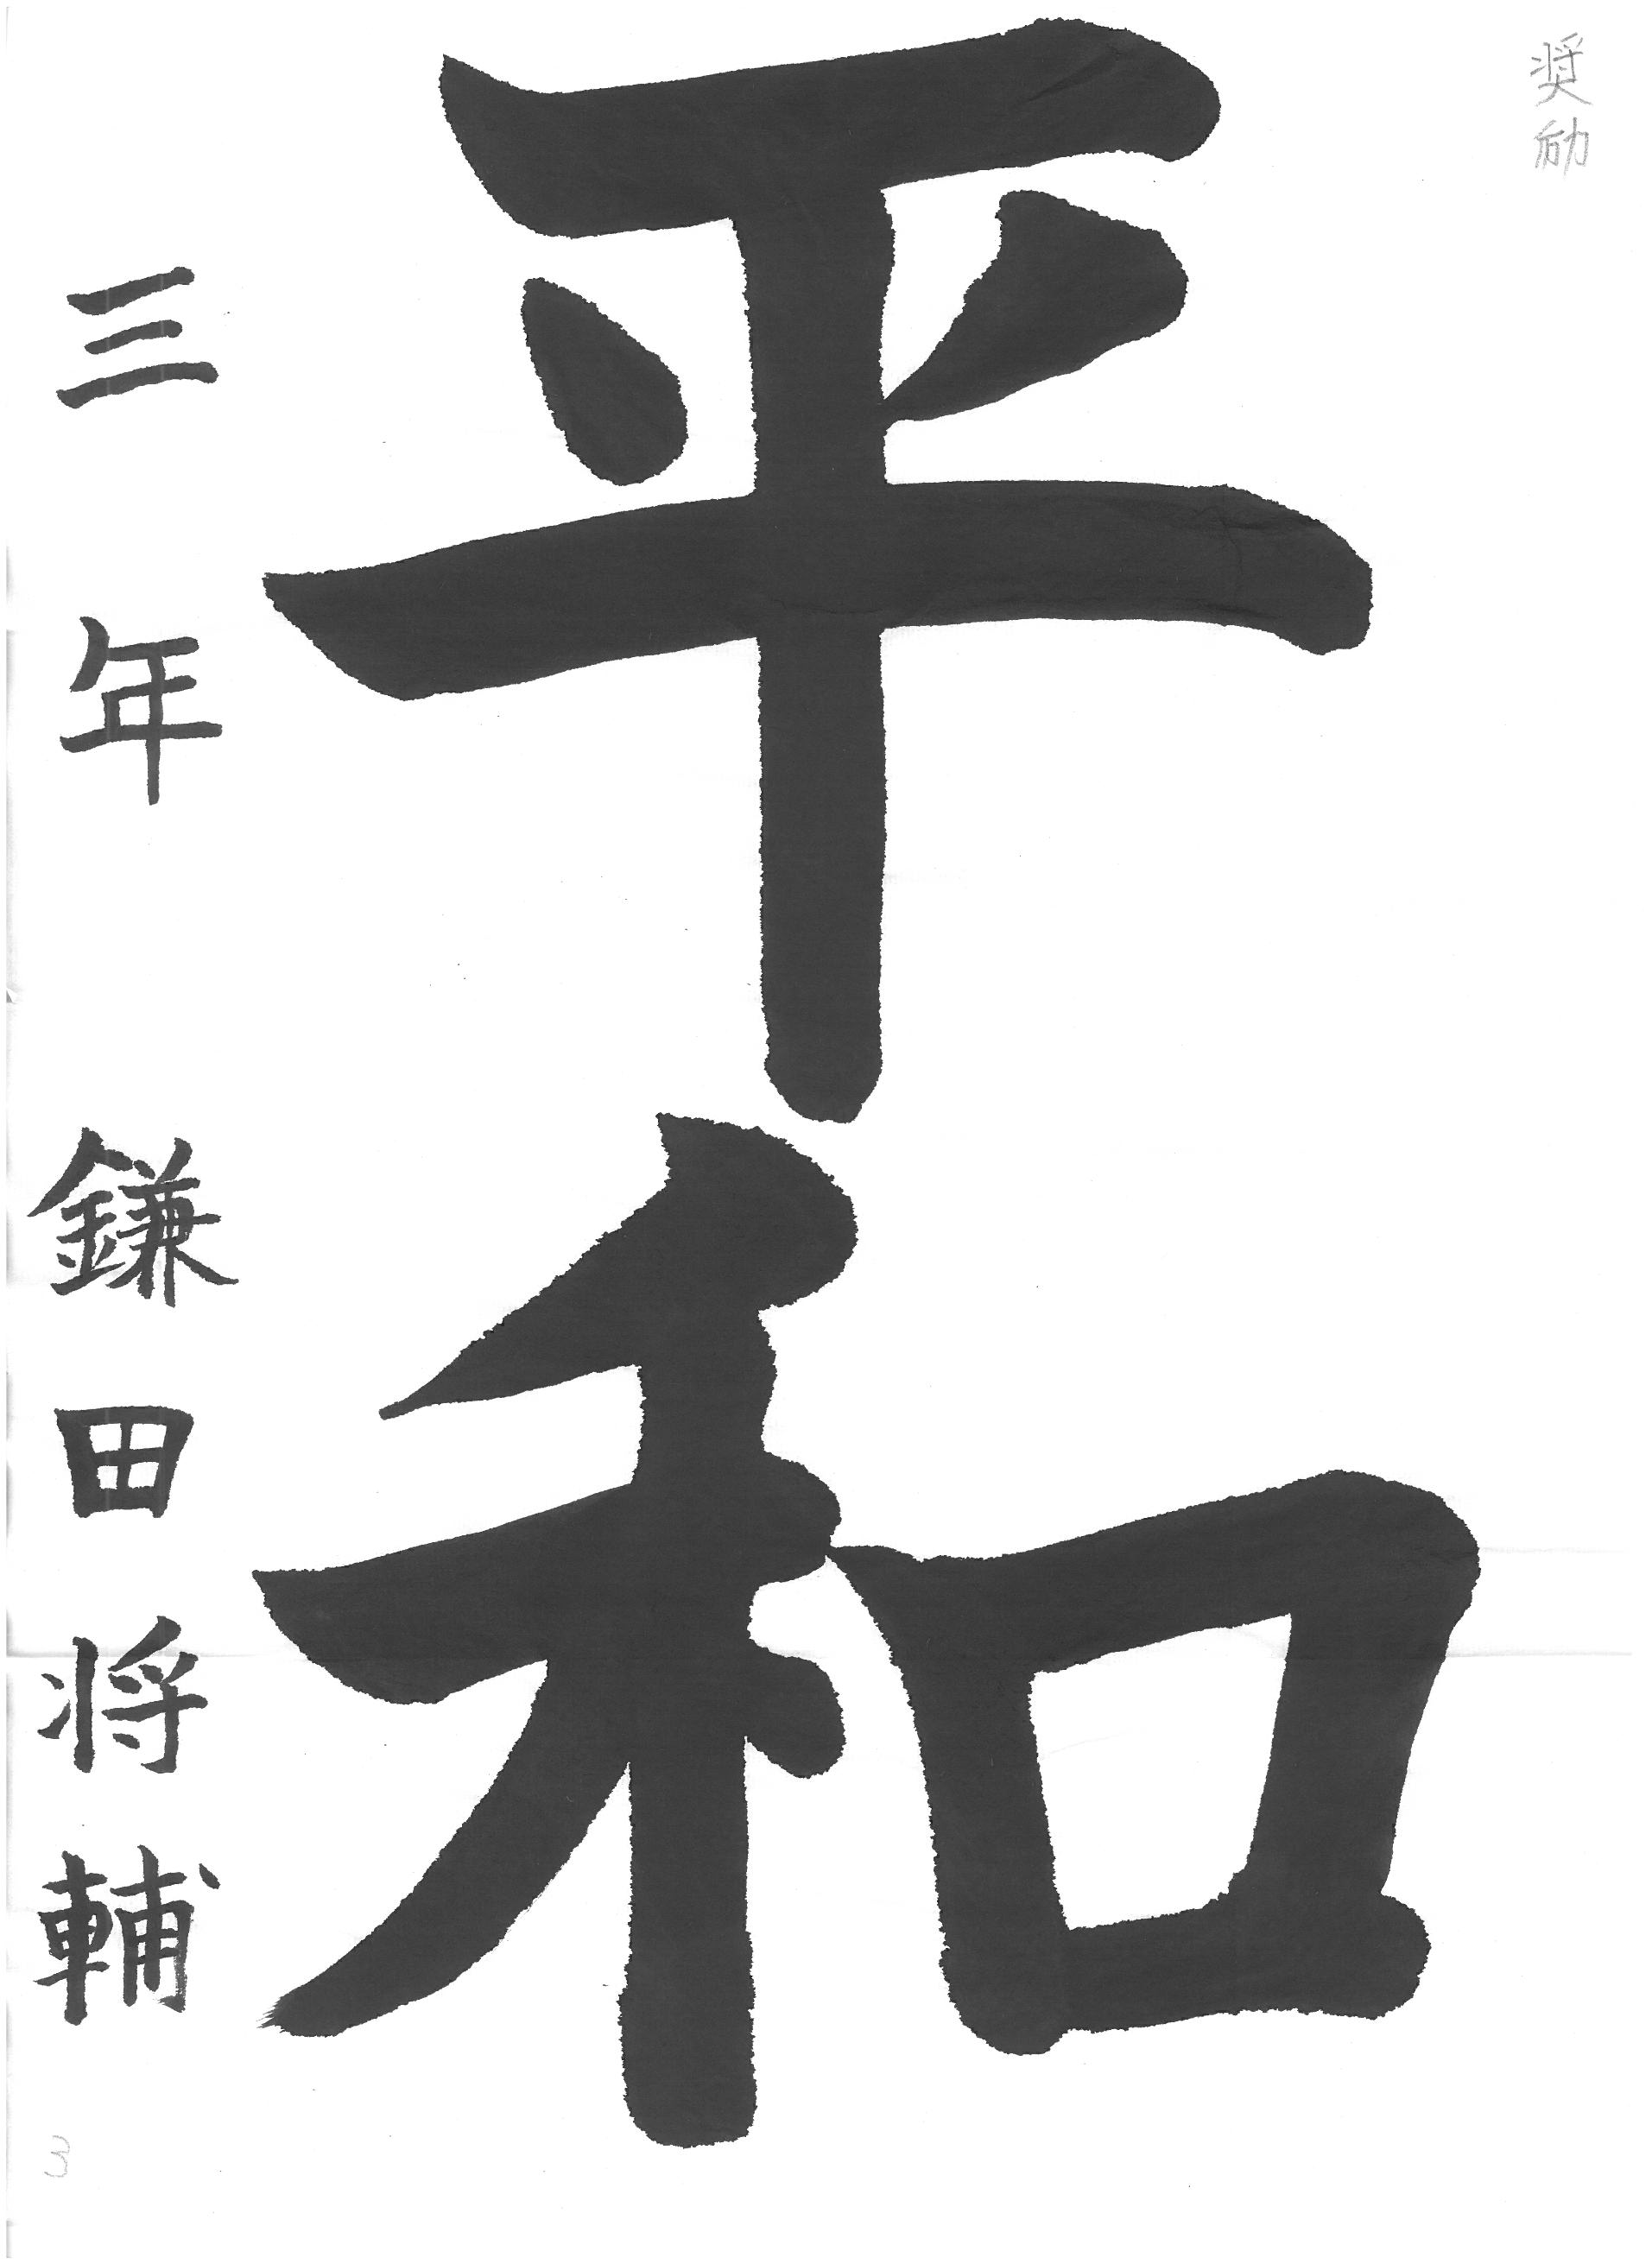 奨励
平和
三年 鎌田将輔
3